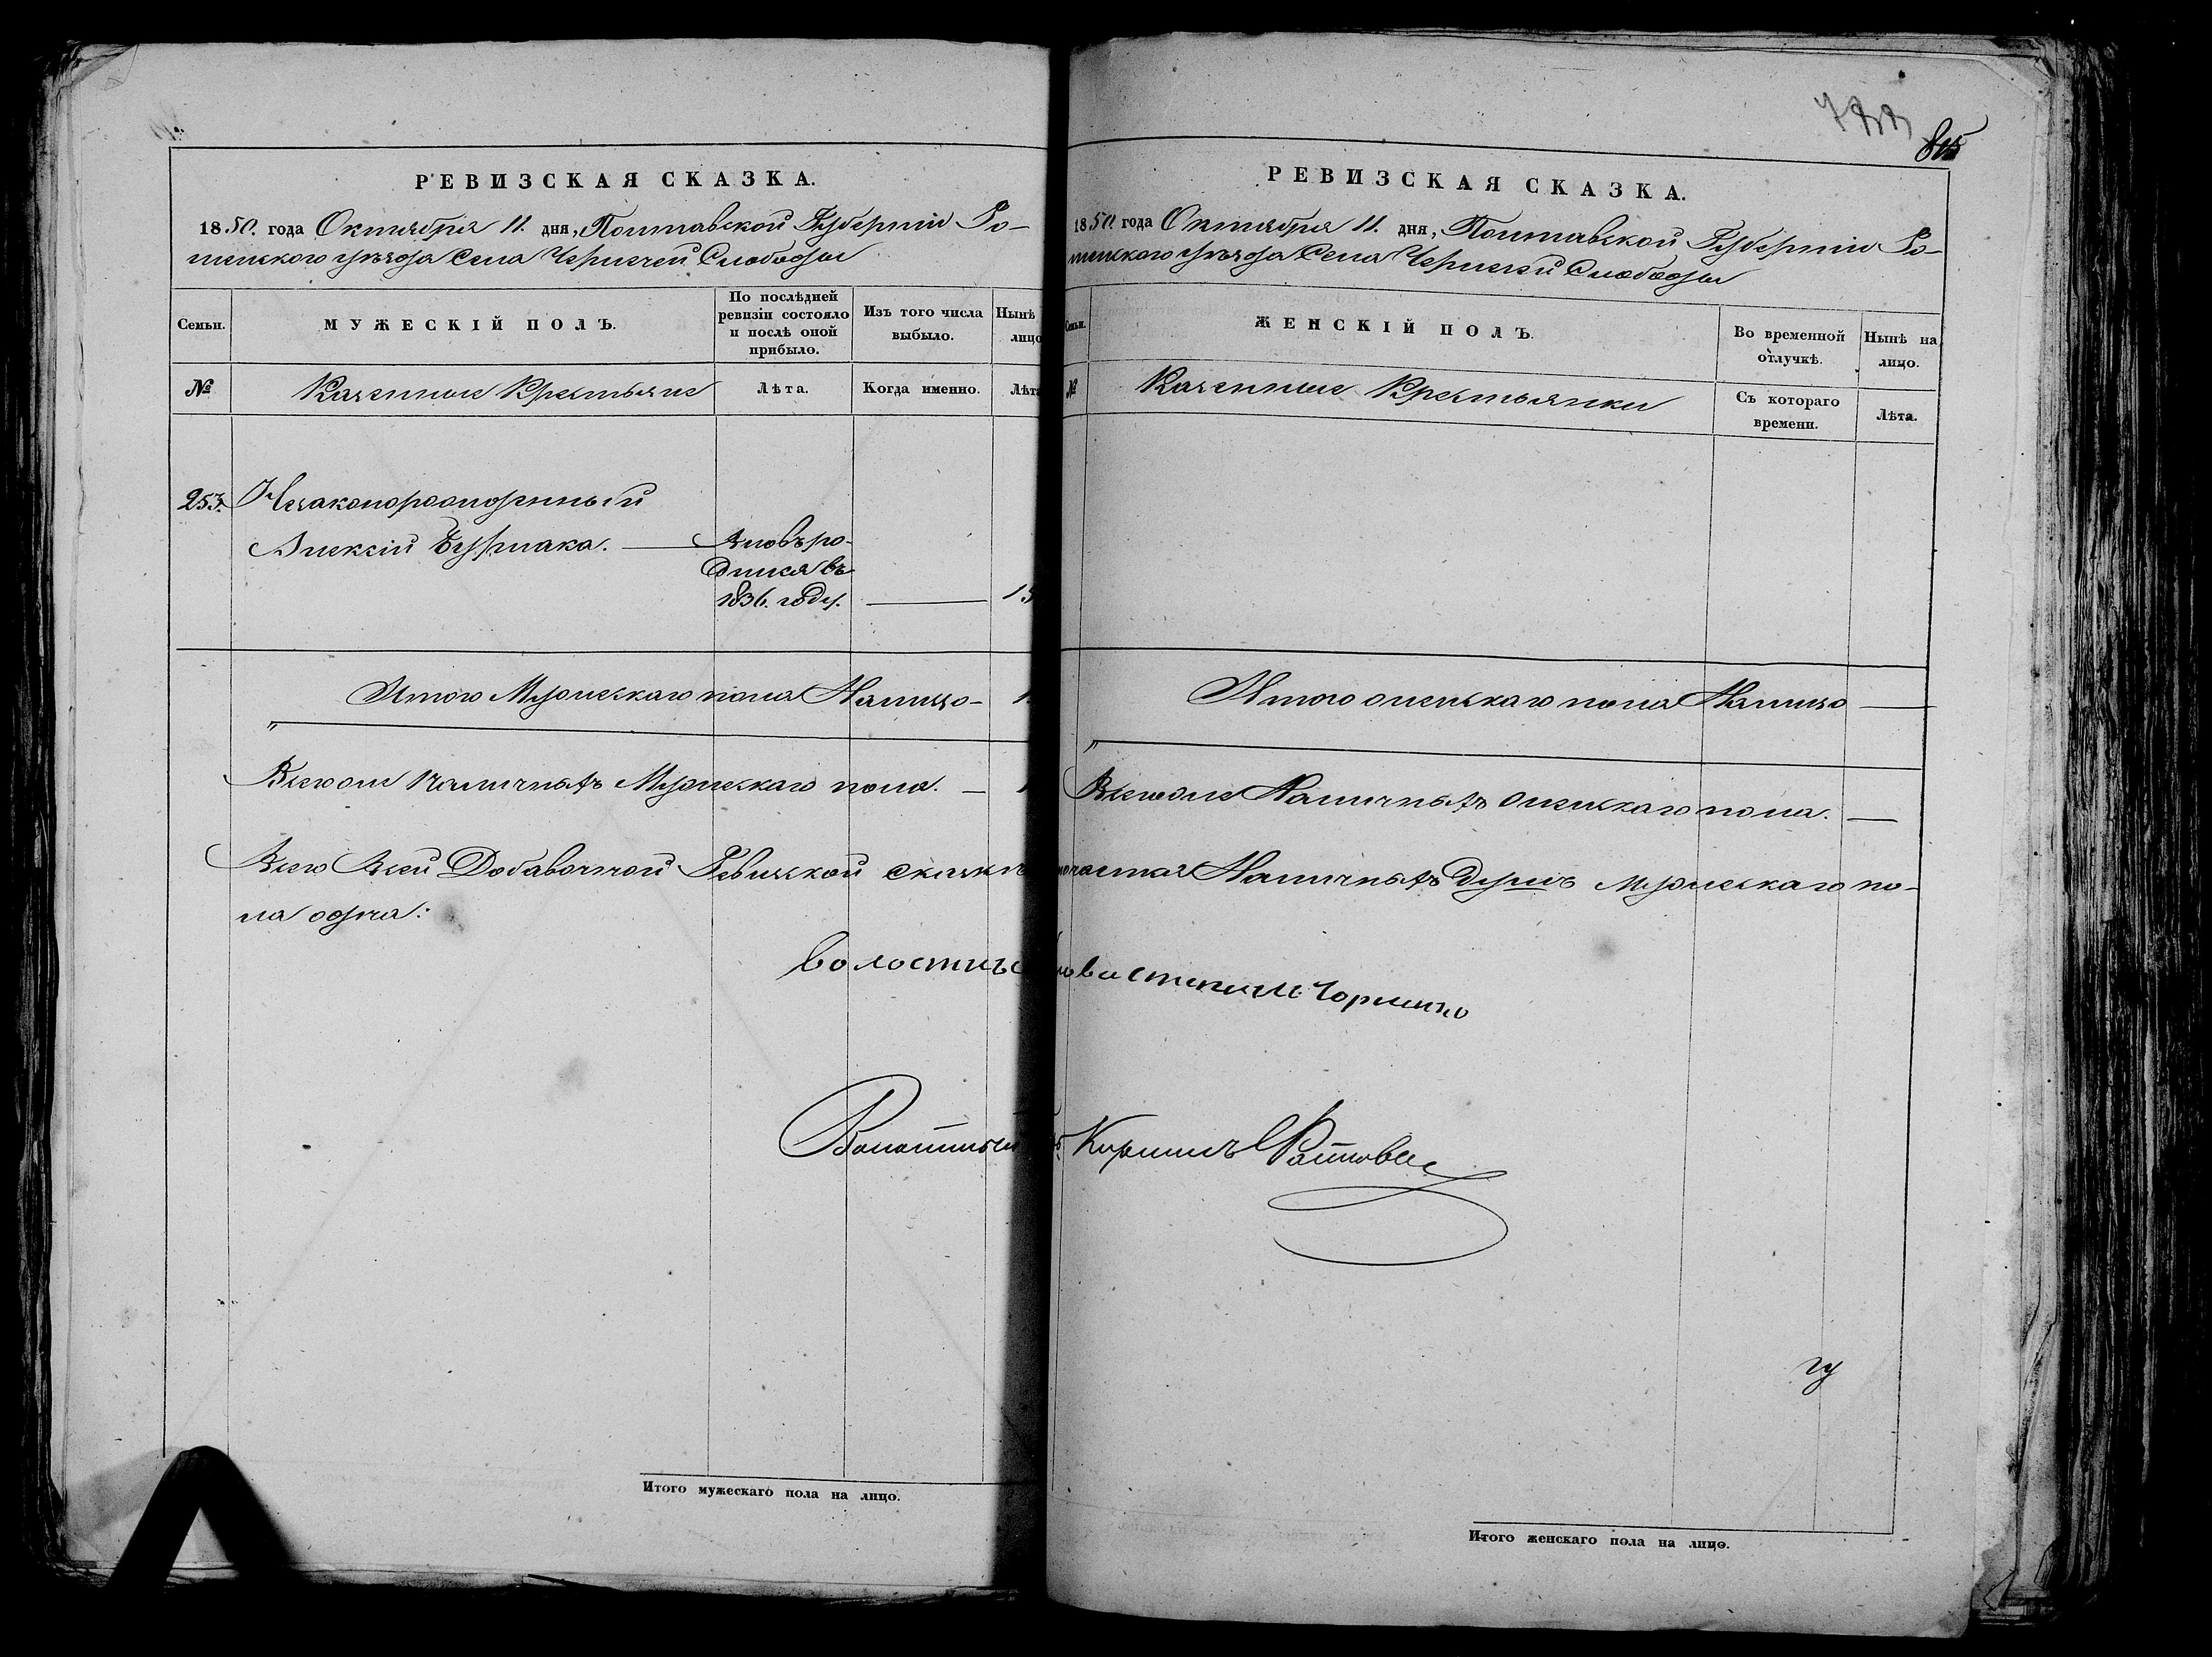 РЕВИЗСКАЯ СКАЗКА.
1850. года Октября 11. дня, Полтавской Губерніи Ро-
менского уѣзда Села Чернечей Слободы
Семьи.
МУЖЕСКІЙ ПОЛЪ.
По послѣдней ревизіи состояло и послѣ оной прибыло.
Изъ того числа выбыло.
Нынѣ
лицо
№
Казенные Крестьяне
Лѣта.
Когда именно.
Лѣта
253. Незаконорожденный
Алексій Бурлака. — Вновь ро-
дился въ
1836. году. — 15
Итого Мужескаго пола Налицо -
"
Всегоже Наличныхъ Мужескаго пола. —
Всего Всей Добавочной Ревизской сказкѣ
ла одна:
Волостный
Итого мужескаго пола на лицо.
815
РЕВИЗСКАЯ СКАЗКА.
1850. года Октября 11. дня, Полтавской Губерніи Ро-
менского уѣзда Села Чернечей Слободы
Семьи.
ЖЕНСКІЙ ПОЛЪ.
Во временной отлучкѣ.
Нынѣ на лицо.
№
Казенные Крестьянки
Съ котораго времени.
Лѣта.
Итого женскаго пола Налицо —
"
Всегоже Наличныхъ женскаго пола. —
Наличныхъ Душъ мужескаго по-
Кирилъ
Итого женскаго пола на лицо.